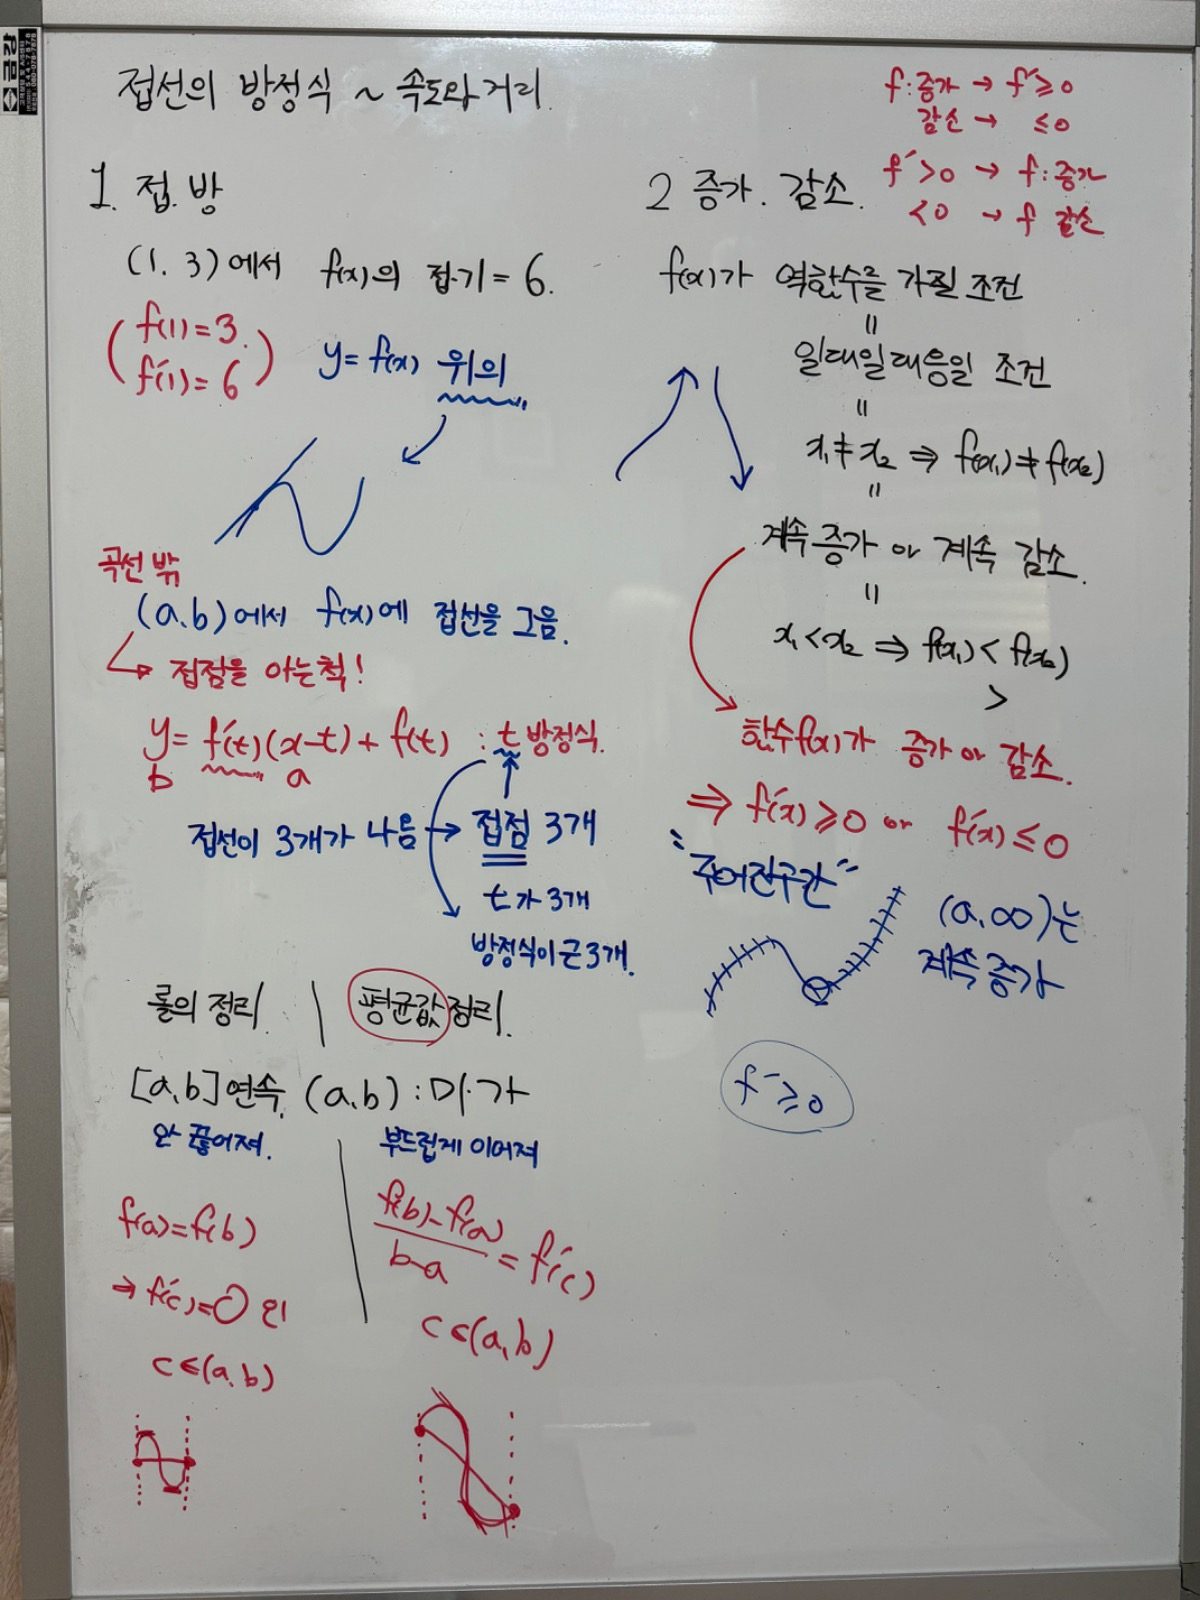 접선의 방정식 ~ 속도와 거리
1. 접.방
(1. 3)에서 f(x)의 접.기 = 6.
f(1)=3.
f′(1)=6
y=f(x) 위의
곡선 밖
(a.b)에서 f(x)에 접선을 그음.
→ 접점을 아는척!
y= f′(t)(x-t)+f(t) : t 방정식.
b a
접선이 3개가 나옴 → 접점 3개
t가 3개
방정식이 근 3개.
롤의 정리 | 평균값 정리.
[a.b]연속. (a.b) : 미.가
안 끊어져. 부드럽게 이어져
f(a)=f(b)
⇒ f′(c)=0 인
c∈(a.b)
f(b)-f(a)
b-a
= f′(c)
c∈(a,b)
f:증가 → f′≥0
감소 → ≤0
f′>0 → f:증가
<0 → f 감소
2 증가. 감소.
f(x)가 역함수를 가질 조건
=
일대일대응일 조건
=
x₁≠x₂ ⇒ f(x₁)≠f(x₂)
=
계속 증가 or 계속 감소.
=
x₁<x₂ ⇒ f(x₁)<f(x₂)
>
함수f(x)가 증가 or 감소.
⇒ f′(x)≥0 or f′(x)≤0
"주어진구간"
(a.∞)는
계속 증가
f′≥0